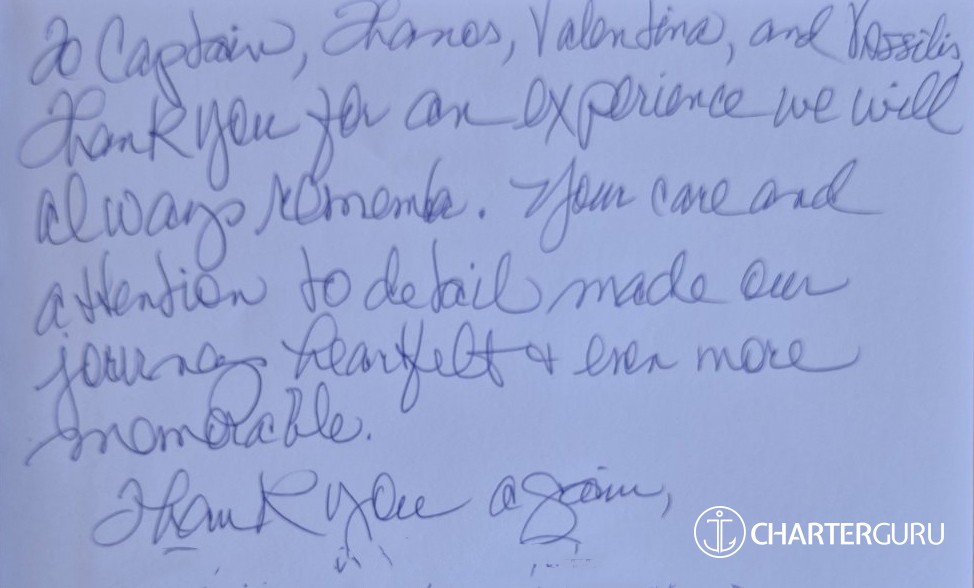 To Captain, Thanos, Valentina, and Vassilis,
Thank you for an experience we will
always remember. Your care and
attention to detail made our
journey heartfelt & even more
memorable.
Thank you again,
CHARTERGURU